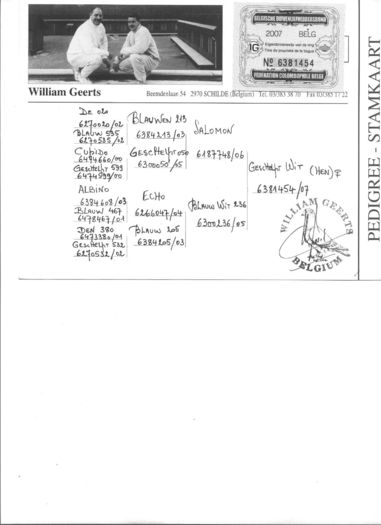 BELGISCHE DUIVENLIEFHEBBERSBOND
2007 BELG
IG
Eigendomsbewijs van de ring
Titre de propriété de la bague
Nº 6381454
FEDERATION COLOMBOPHILE BELGE
William Geerts
Beemdenlaan 54 2970 SCHILDE (Belgium) Tel. 03/383 38 70 Fax 03/385 17 22
PEDIGREE - STAMKAART
De 020
6270020/02
BLAUW 535
6270535/02
CUPIDO
6494660/00
GESCHELPT 599
6474599/00
ALBINO
6384608/03
BLAUW 467
6478467/01
DEN 380
6473380/01
GESCHELPT 532
6270532/02
BLAUWEN 213
6384213/03
GESCHELPT 050
6300050/05
ECHO
6266047/04
BLAUW 205
6384205/03
SALOMON
6187748/06
BLAUW WIT 236
6300236/05
GESCHELPT WIT (HEN)
6381454/07
WILLIAM GEERTS
BELGIUM